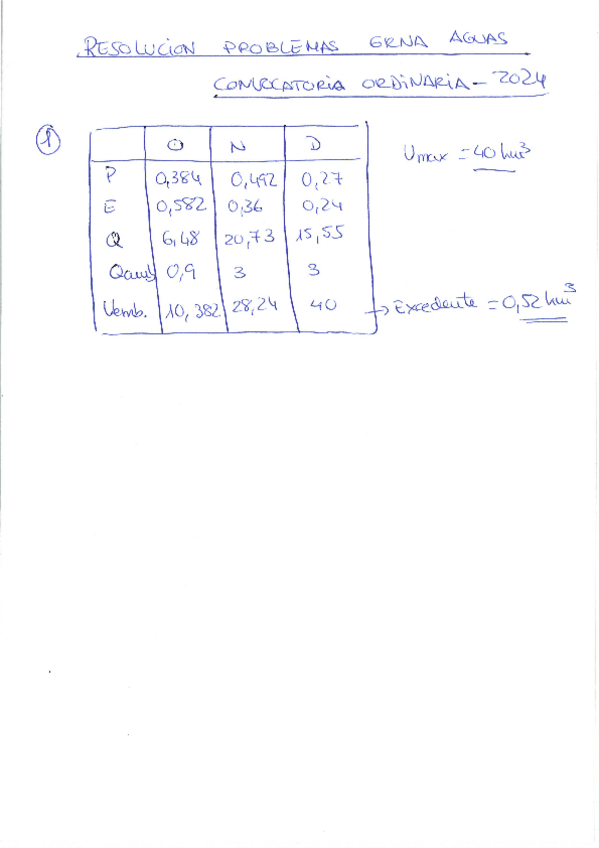 RESOLUCION PROBLEMAS GRNA AGUAS
CONVOCATORIA ORDINARIA - 2024
1
O N D
P 0,384 0,492 0,27
E 0,582 0,36 0,24
Q 6,48 20,73 15,55
Qamb 0,9 3 3
Vemb. 10,382 28,24 40 → Excedente = 0,52 hm³
Vmax = 40 hm³